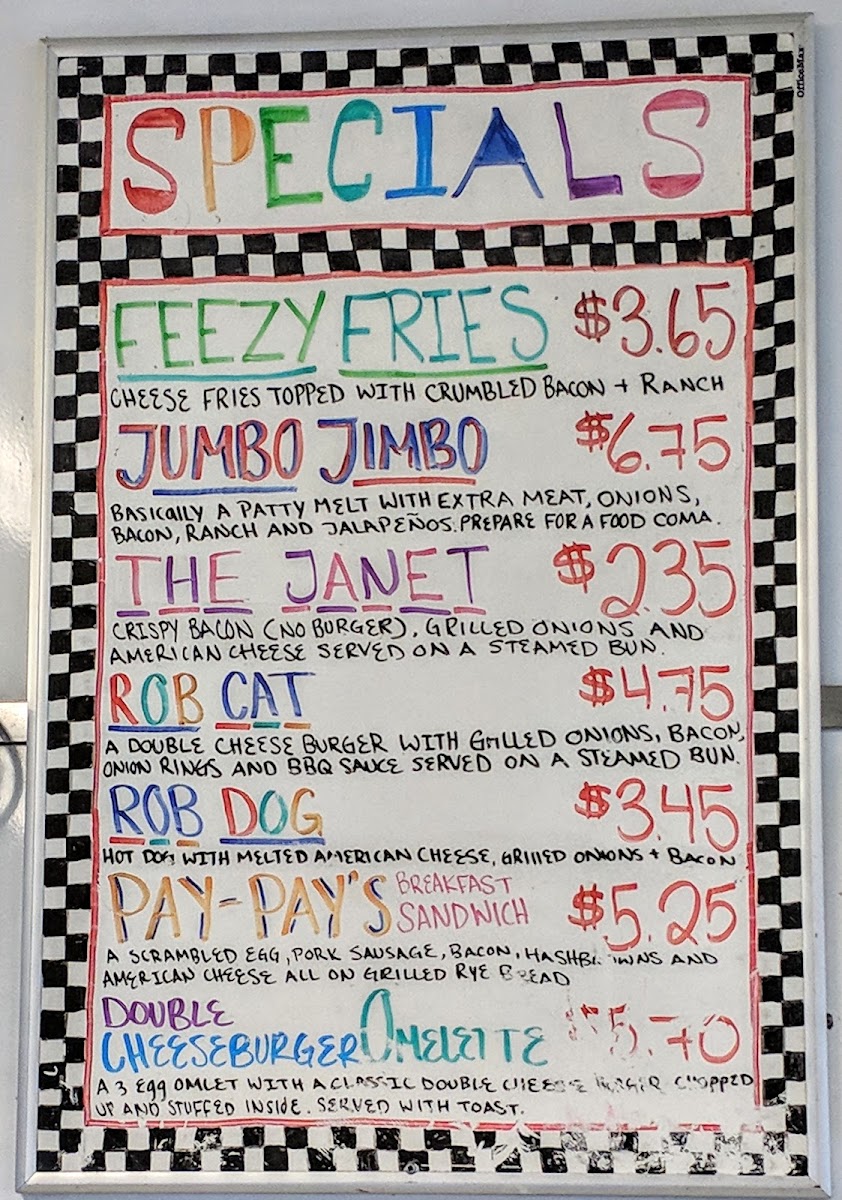 OfficeMax
SPECIALS
FEEZY FRIES $3.65
CHEESE FRIES TOPPED WITH CRUMBLED BACON + RANCH
JUMBO JIMBO $6.75
BASICALLY A PATTY MELT WITH EXTRA MEAT, ONIONS,
BACON, RANCH AND JALAPEÑOS. PREPARE FOR A FOOD COMA.
THE JANET $2.35
CRISPY BACON (NO BURGER), GRILLED ONIONS AND
AMERICAN CHEESE SERVED ON A STEAMED BUN.
ROB CAT $4.75
A DOUBLE CHEESE BURGER WITH GRILLED ONIONS, BACON,
ONION RINGS AND BBQ SAUCE SERVED ON A STEAMED BUN.
ROB DOG $3.45
HOT DOG WITH MELTED AMERICAN CHEESE, GRILLED ONIONS + BACON
PAY-PAY'S BREAKFAST SANDWICH $5.25
A SCRAMBLED EGG, PORK SAUSAGE, BACON, HASHBROWNS AND
AMERICAN CHEESE ALL ON GRILLED RYE BREAD
DOUBLE
CHEESEBURGER OMELETTE $5.70
A 3 EGG OMLET WITH A CLASSIC DOUBLE CHEESE BURGER CHOPPED
UP AND STUFFED INSIDE. SERVED WITH TOAST.